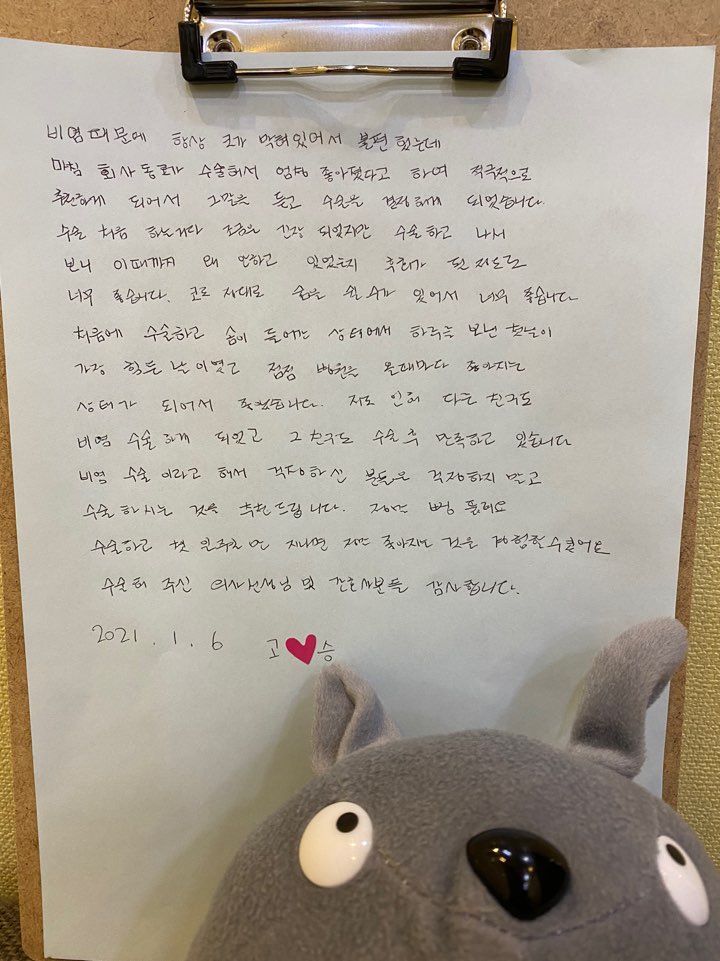 비염때문에 항상 코가 막혀있어서 불편 했는데
마침 회사 동료가 수술해서 엄청 좋아졌다고 하여 적극적으로
추천하게 되어서 그말을 듣고 수술을 결정하게 되었습니다.
수술 처음 하는거라 조금은 긴장 되었지만 수술하고 나서
보니 이때까지 왜 안하고 있었는지 후회가 될 정도로
너무 좋습니다. 코로 제대로 숨을 쉴 수가 있어서 너무 좋습니다
처음에 수술하고 솜이 들어간 상태에서 하루를 보낸 첫날이
가장 힘든 날이였고 점점 병원을 올때마다 좋아지는
상태가 되어서 좋았습니다. 저로 인해 다른 친구도
비염 수술하게 되었고 그 친구도 수술 후 만족하고 있습니다
비염 수술 이라고 해서 걱정하신 분들은 걱정하지 말고
수술 하시는 것을 추천드립니다. 뻥 뚫려요
수술하고 첫 일주일 만 지나면 점점 좋아지는 것을 경험할수있어요
수술해 주신 의사선생님 및 간호사분들 감사합니다.
2021. 1. 6 고 승